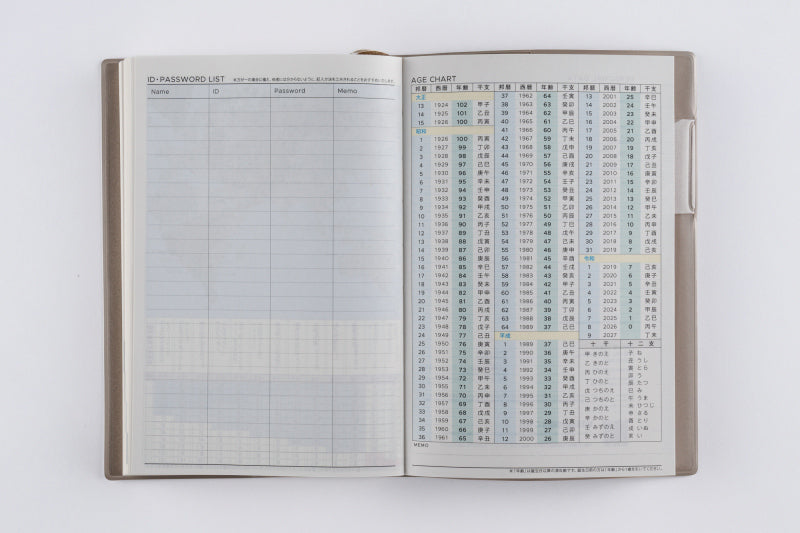 ID・PASSWORD LIST
Name ID Password Memo
AGE CHART
邦暦 西暦 年齢 干支
大正
13 1924 102 甲子
14 1925 101 乙丑
15 1926 100 丙寅
昭和
1 1926 100 丙寅
2 1927 99 丁卯
3 1928 98 戊辰
4 1929 97 己巳
5 1930 96 庚午
6 1931 95 辛未
7 1932 94 壬申
8 1933 93 癸酉
9 1934 92 甲戌
10 1935 91 乙亥
11 1936 90 丙子
12 1937 89 丁丑
13 1938 88 戊寅
14 1939 87 己卯
15 1940 86 庚辰
16 1941 85 辛巳
17 1942 84 壬午
18 1943 83 癸未
19 1944 82 甲申
20 1945 81 乙酉
21 1946 80 丙戌
22 1947 79 丁亥
23 1948 78 戊子
24 1949 77 己丑
25 1950 76 庚寅
26 1951 75 辛卯
27 1952 74 壬辰
28 1953 73 癸巳
29 1954 72 甲午
30 1955 71 乙未
31 1956 70 丙申
32 1957 69 丁酉
33 1958 68 戊戌
34 1959 67 己亥
35 1960 66 庚子
36 1961 65 辛丑
邦暦 西暦 年齢 干支
37 1962 64 壬寅
38 1963 63 癸卯
39 1964 62 甲辰
40 1965 61 乙巳
41 1966 60 丙午
42 1967 59 丁未
43 1968 58 戊申
44 1969 57 己酉
45 1970 56 庚戌
46 1971 55 辛亥
47 1972 54 壬子
48 1973 53 癸丑
49 1974 52 甲寅
50 1975 51 乙卯
51 1976 50 丙辰
52 1977 49 丁巳
53 1978 48 戊午
54 1979 47 己未
55 1980 46 庚申
56 1981 45 辛酉
57 1982 44 壬戌
58 1983 43 癸亥
59 1984 42 甲子
60 1985 41 乙丑
61 1986 40 丙寅
62 1987 39 丁卯
63 1988 38 戊辰
64 1989 37 己巳
平成
1 1989 37 己巳
2 1990 36 庚午
3 1991 35 辛未
4 1992 34 壬申
5 1993 33 癸酉
6 1994 32 甲戌
7 1995 31 乙亥
8 1996 30 丙子
9 1997 29 丁丑
10 1998 28 戊寅
11 1999 27 己卯
12 2000 26 庚辰
邦暦 西暦 年齢 干支
13 2001 25 辛巳
14 2002 24 壬午
15 2003 23 癸未
16 2004 22 甲申
17 2005 21 乙酉
18 2006 20 丙戌
19 2007 19 丁亥
20 2008 18 戊子
21 2009 17 己丑
22 2010 16 庚寅
23 2011 15 辛卯
24 2012 14 壬辰
25 2013 13 癸巳
26 2014 12 甲午
27 2015 11 乙未
28 2016 10 丙申
29 2017 9 丁酉
30 2018 8 戊戌
31 2019 7 己亥
令和
1 2019 7 己亥
2 2020 6 庚子
3 2021 5 辛丑
4 2022 4 壬寅
5 2023 3 癸卯
6 2024 2 甲辰
7 2025 1 乙巳
8 2026 0 丙午
9 2027 丁未
十干 十二支
甲 きのえ
乙 きのと
丙 ひのえ
丁 ひのと
戊 つちのえ
己 つちのと
庚 かのえ
辛 かのと
壬 みずのえ
癸 みずのと
子 ね
丑 うし
寅 とら
卯 う
辰 たつ
巳 み
午 うま
未 ひつじ
申 さる
酉 とり
戌 いぬ
亥 い
MEMO